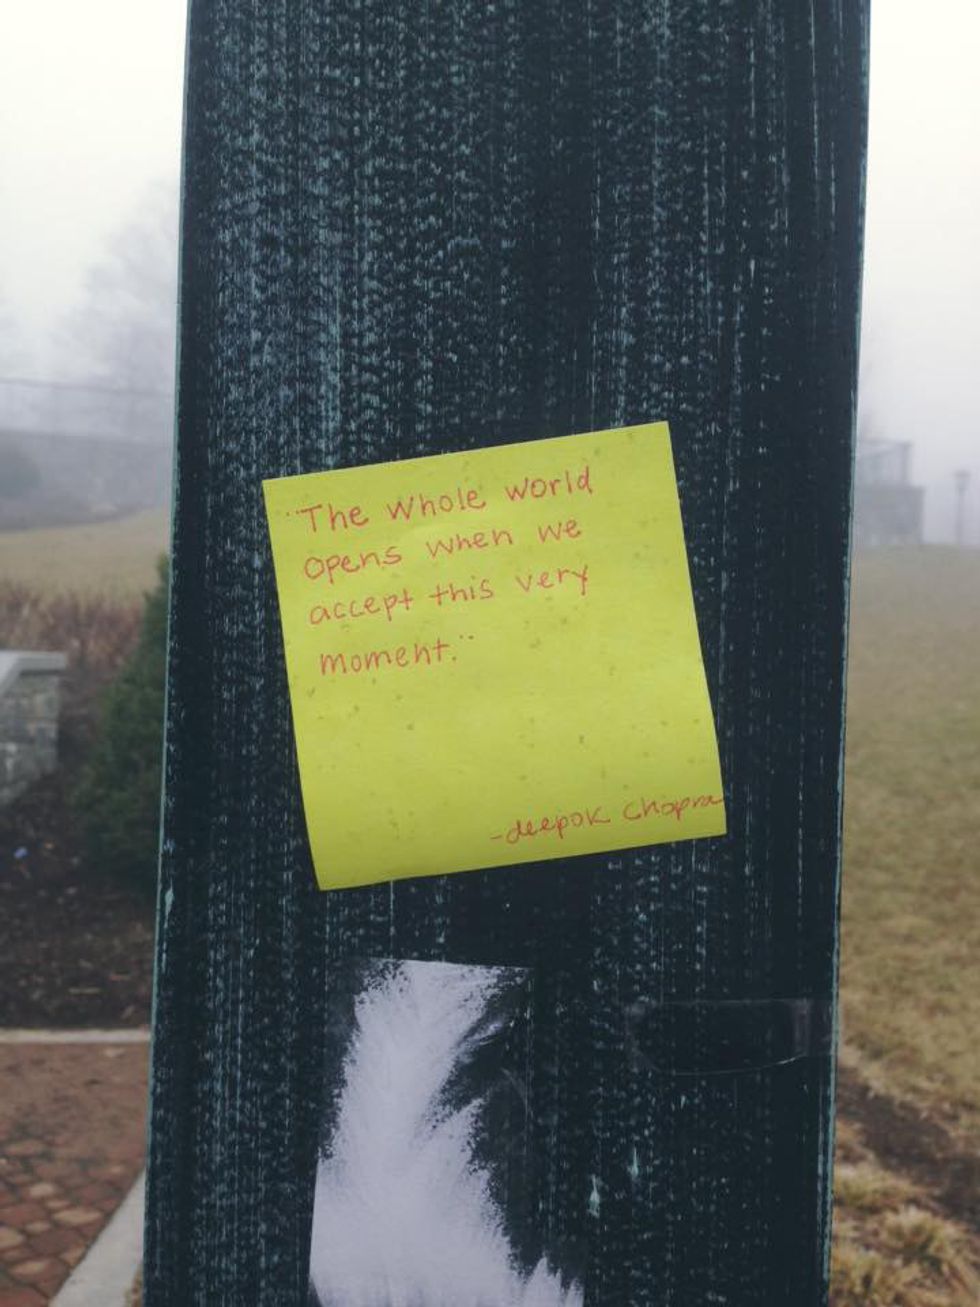 "The whole world
opens when we
accept this very
moment."
-deepok Chopra